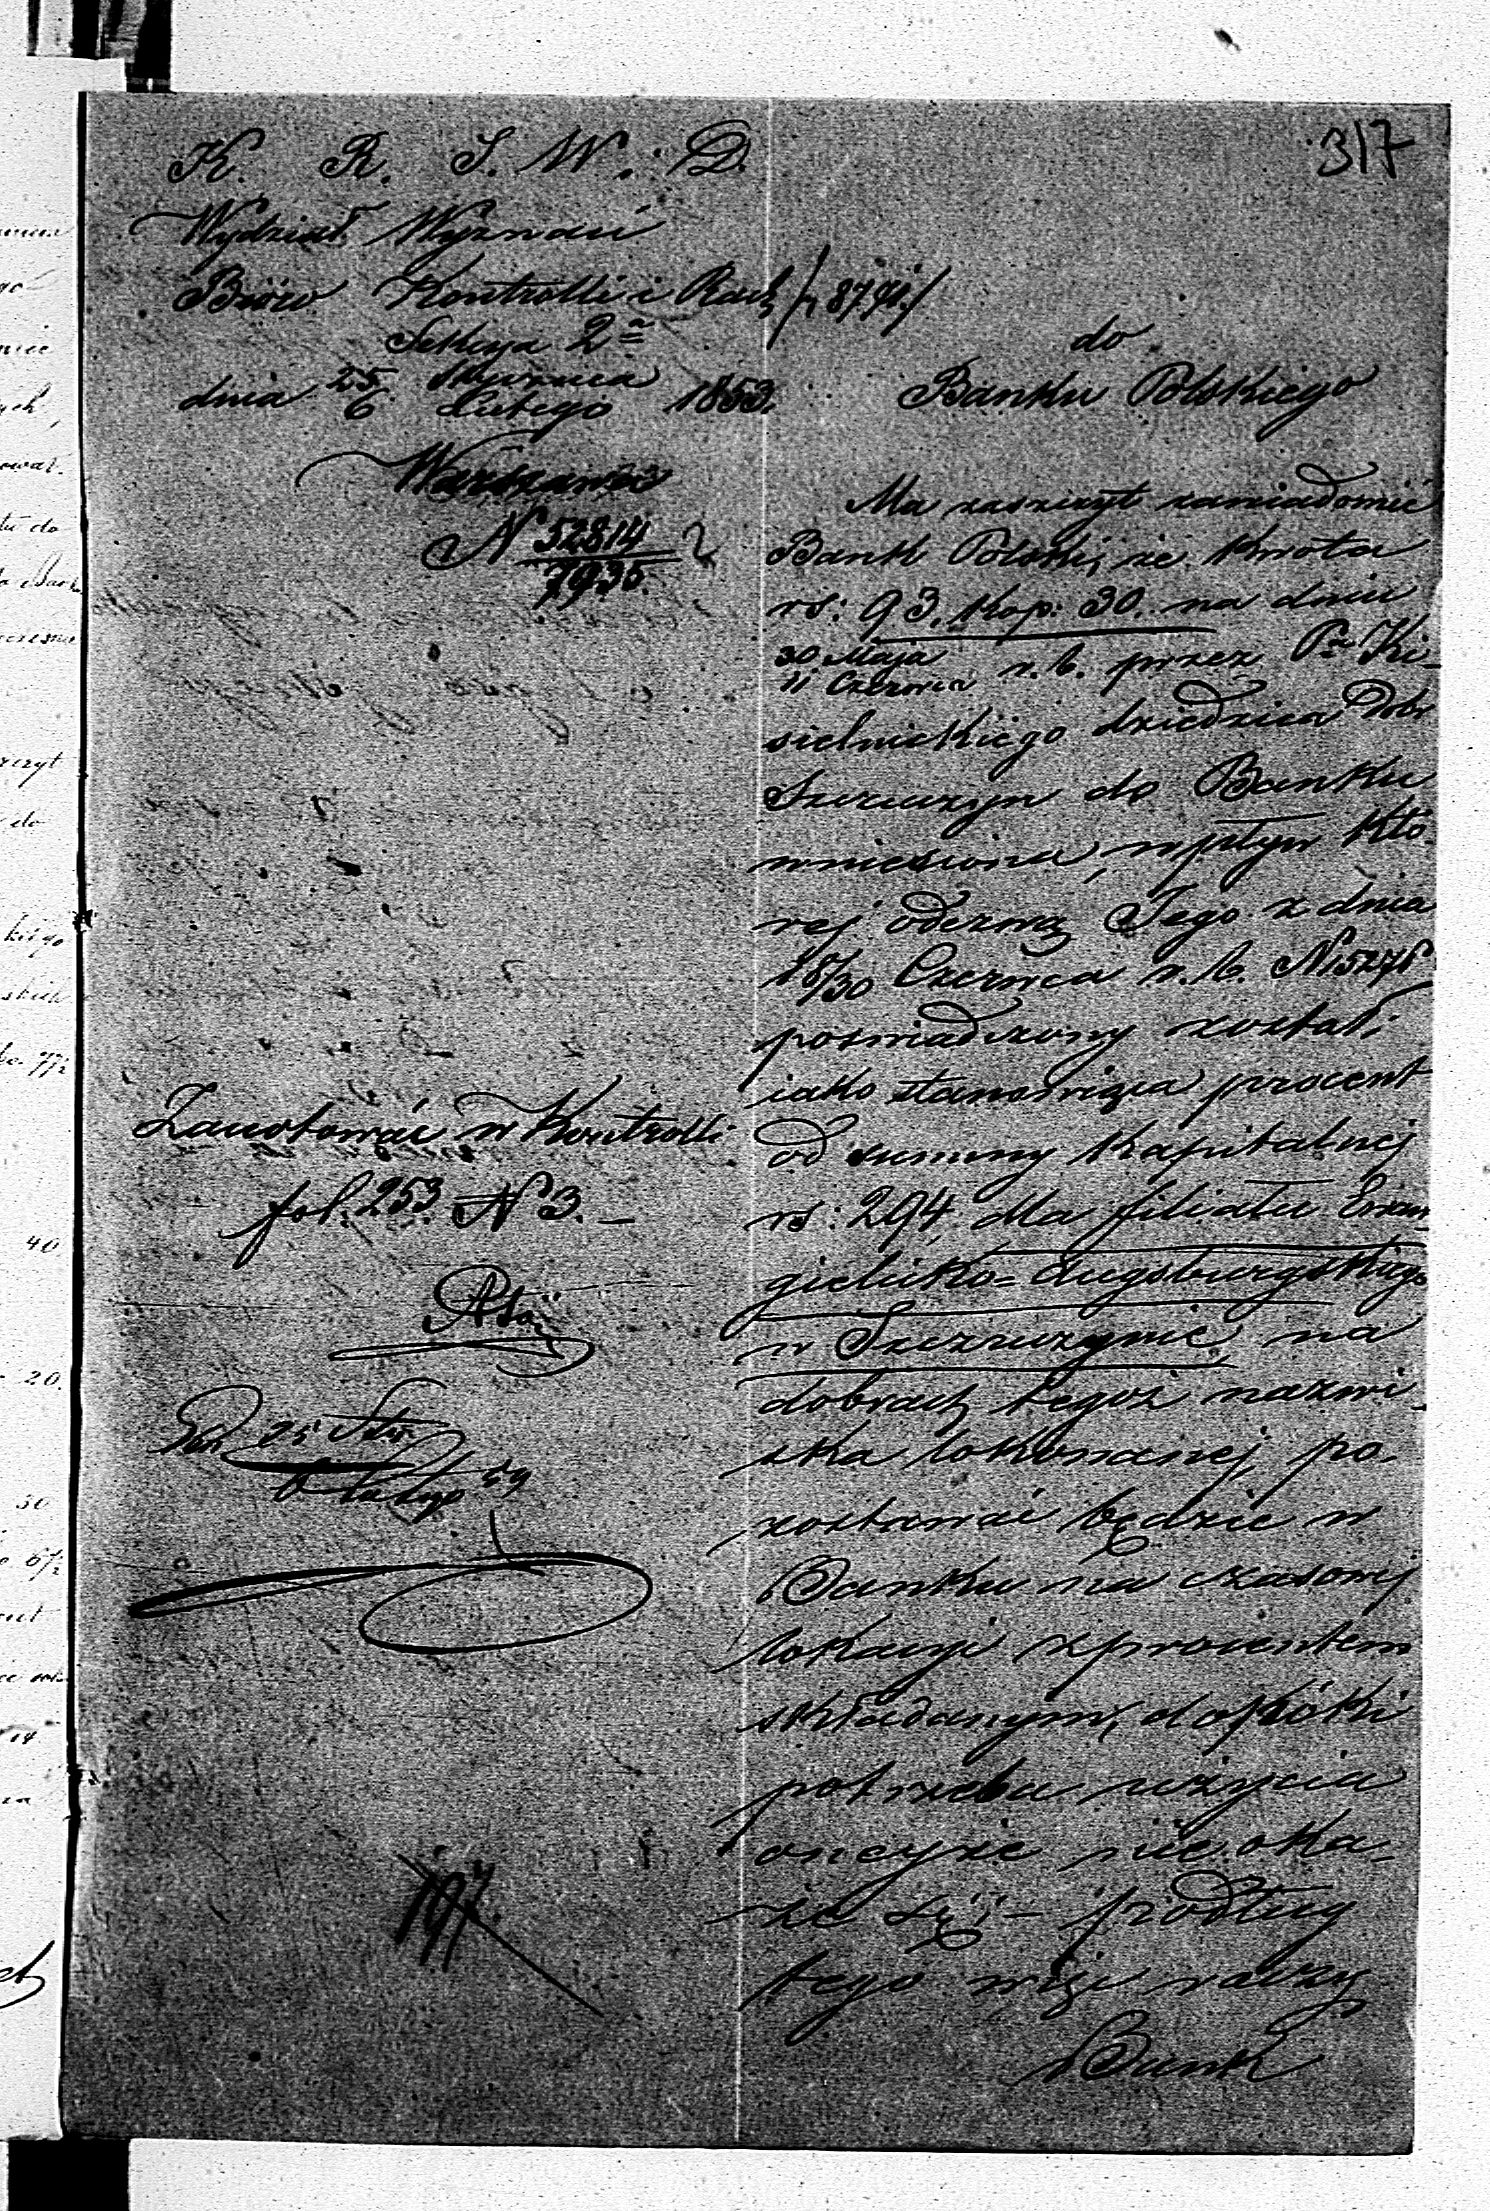 317
K. R. S. W. D.
Wydział Wyznań
Biöro Kontrolli i Rach
Sekcya 2ª
dnia 25 Stycznia / 6 Lutego 1853.
Warszawa
N 52814 / 7935.
do
Banku Polskiego
Ma zaszczyt zawiadomić
Bank Polski, że kwota
rs: 93. kop: 30. na dniu
30 Maja / 11 Czerwca r. b. przez Pª Ki-
sielnickiego dziedzica Dobr
Szczuczyn do Banku
wniesiona, wpływ któ-
rej odezwą Jego z dnia
18/30 Czerwca r. b. N
poswiadczony został;
iako stanowiąca procent
od summy kapitalnej
rs: 294. dla filiału Ewan-
gielicko-Augsburgskiego
w Szczuczynie, na
dobrach tegoż nazwi-
ska lokowanej, po-
zostawać będzie w
Banku na czasowej
lokacyi z procentem
składanym, dopóki
potrzeba użycia
onejże nie oka-
że się; – podług
tego więc raczy
Bank
Zanotować w Kontrolli
fol. 253. N 3. –
25
6 Lutego
197.